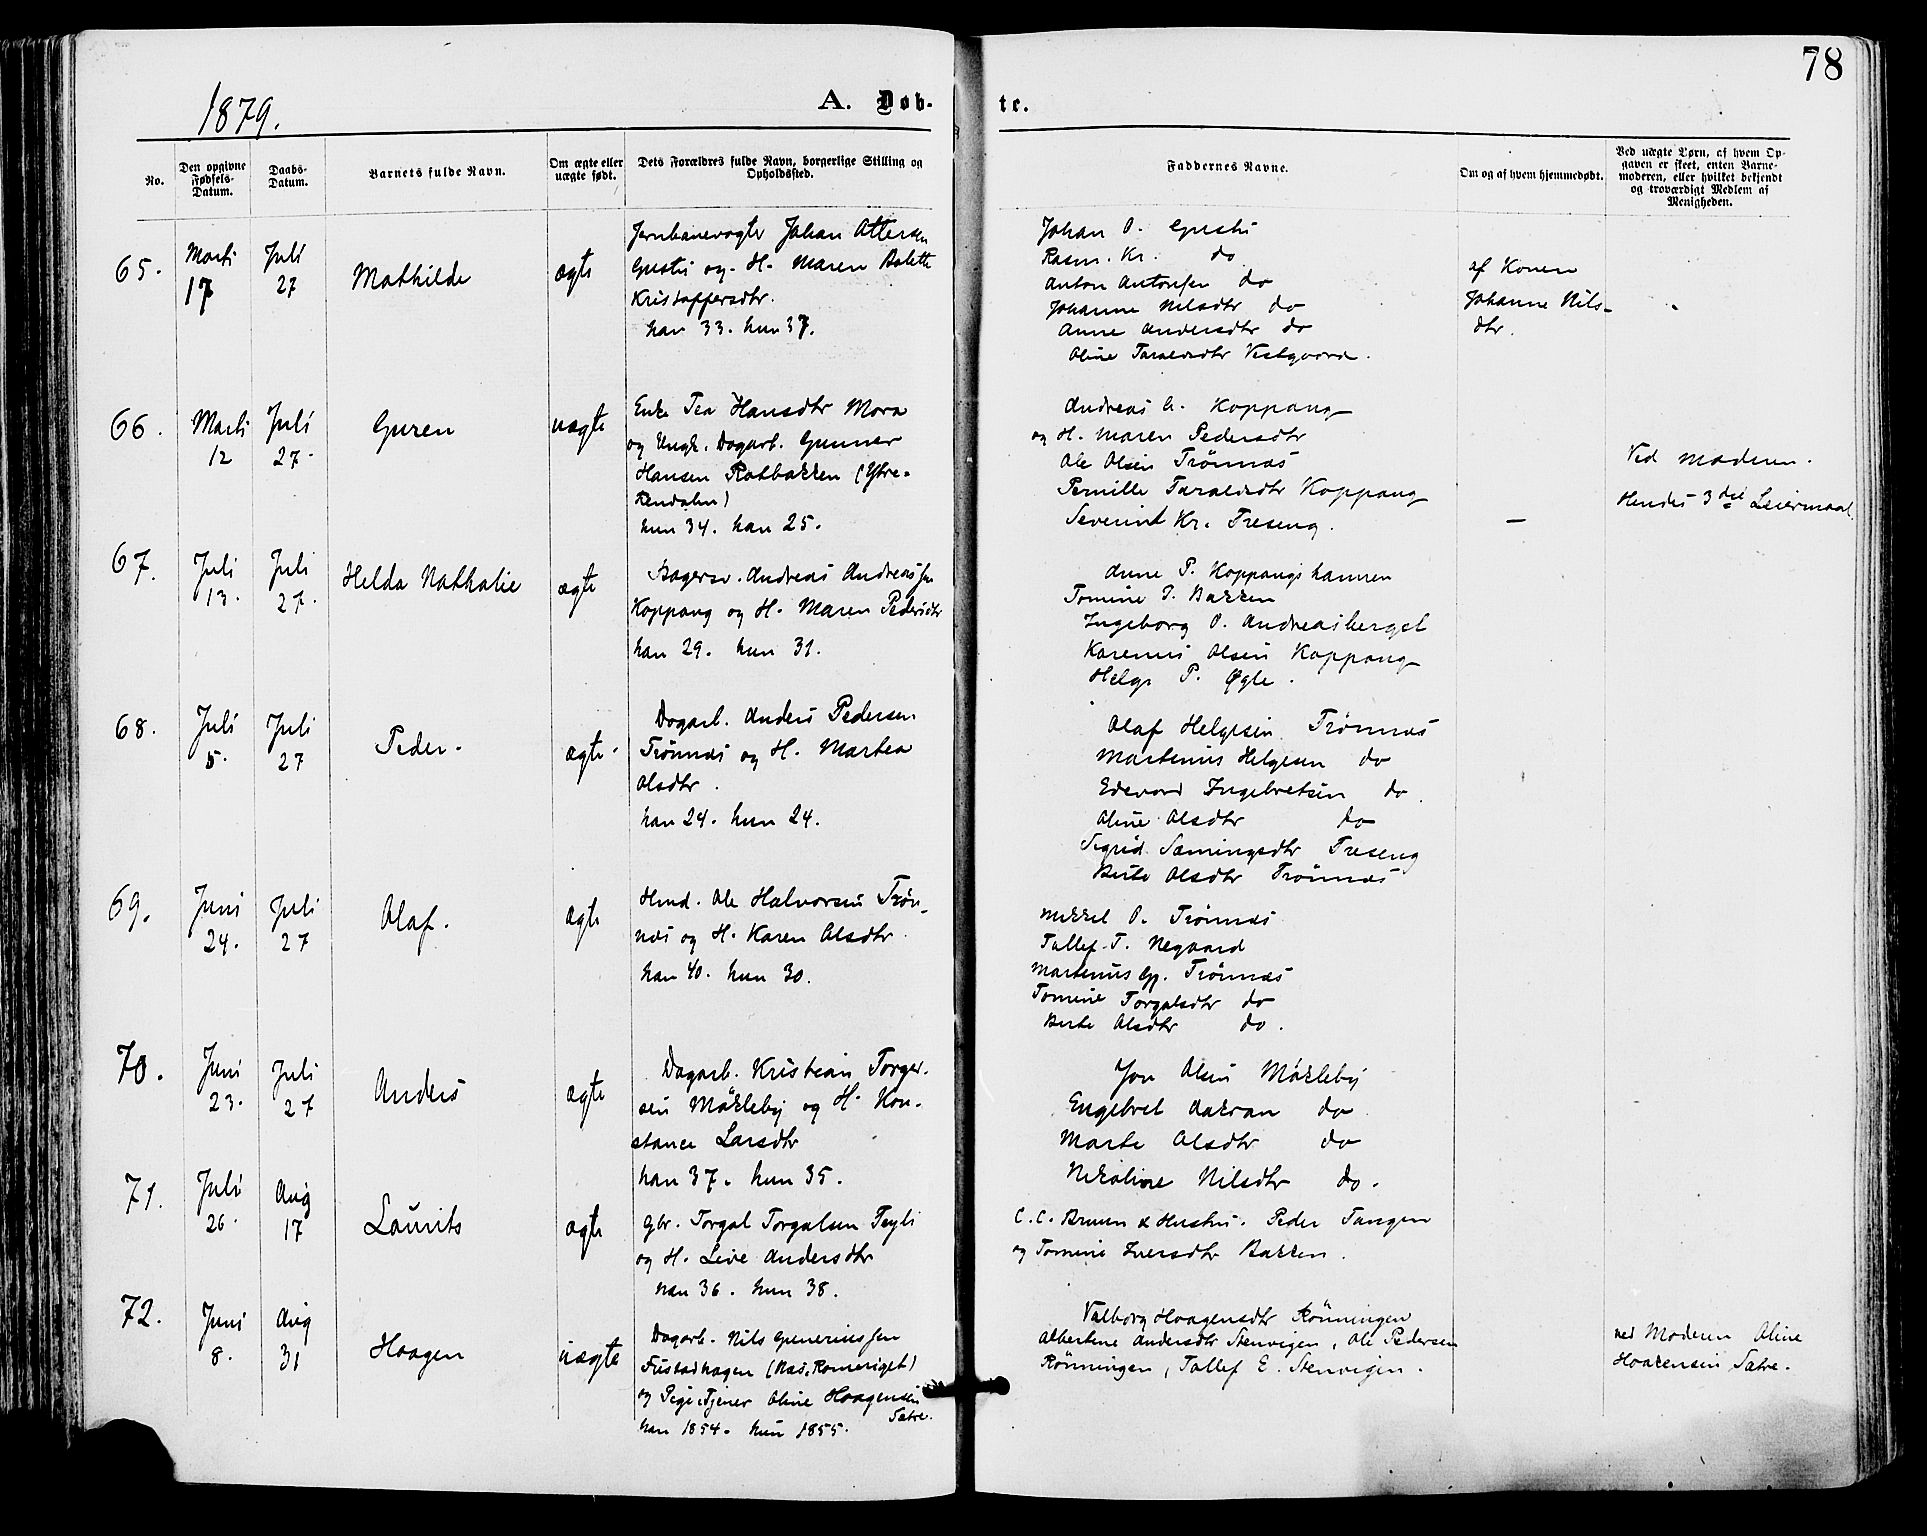 78
1879.
A. Døb-
te.
No.
Den opgivne Fødsels-Datum.
Daabs-Datum.
Barnets fulde Navn.
Om ægte eller uægte født.
Dets Forældres fulde Navn, borgerlige Stilling og Opholdssted.
Faddernes Navne.
Om og af hvem hjemmedøbt.
Ved uægte Børn, af hvem Op-
gaven er skeet, enten Barne-
moderen, eller hvilket bekjendt
og troværdigt Medlem af
Menigheden.
65.
Marti
17
Juli
27
Mathilde
ægte
Jernbanevogter Johan Ottersen
og H. Maren Bolette
Kristoffersdtr.
han 33. hun 37.
Johan O.
Rasm. Kr. do
Anton Antonsen do
Johanne Nilsdtr do
Anne Andersdtr do
Oline Taraldsdtr Vestgaard.
af Konen
Johanne Nils-
dtr.
66.
Marti
12
Juli
27.
Guren
uægte
Enke Tea Hansdtr Mora
og Ungk. Dagarb. Gunnar
Hansen Ratbakken (Ytre-
Rendalen)
hun 34. han 25.
Andreas A. Koppang
og H. Maren Pedersdtr
Ole Olsen Trönnæs
Pernille Taraldsdtr Koppang
Severint Kr. Treseng.
—
Ved Moderen.
Hendes 3die Leiermaal.
67.
Juli
13.
Juli
27.
Helda Nathalie
ægte
Bagersv. Andreas Andreassen
Koppang og H. Maren Pedersdtr
han 29. hun 31.
Anne P. Koppangshamren
Tomine P. Bakken
Ingeborg O. Andreasberget
Karenus Olsen Koppang
Helge P. Øgle.
68.
Juli
5.
Juli
27
Peder.
ægte.
Dagarb. Anders Pedersen
Trönnæs og H. Martea
Olsdtr.
han 24. hun 24.
Olaf Helgesen Trönnæs
Martinus Helgesen do
Edevard Ingebretsen do.
Oline Olsdtr do
Sigrid Sæmingsdtr Treseng
Berte Olsdtr Trönnæs
69.
Juni
24.
Juli
27
Olaf.
ægte
Hmd. Ole Halvorsen Trön-
næs og H. Karen Olsdtr.
han 40. hun 30.
Mikkel O. Trönnæs
Tollef T. Negaard
Martinus Gj. Trönnæs
Tomine Torgalsdtr do
Berte Olsdtr do.
70.
Juni
23.
Juli
27
Anders
ægte
Dagarb. Kristian Torger-
sen Mökleby og H. Kon-
stance Larsdtr
han 37. hun 35.
Jon Olsen Mökleby
Engebret Aakran do
Marte Olsdtr do
Nikoline Nilsdtr do.
71.
Juli
26.
Aug
17
Laurits
ægte
Gbr. Torgal Torgalsen
og H. Live Andersdtr
han 36. hun 38.
C. C. Bruun & Hustru. Peder Tangen
og Tomine Iversdtr Bakken.
72.
Juni
8.
Aug
31
Haagen
uægte
Dagarb. Nils Gunerius sen
Fustadhagen (Næs, Romeriget)
og Pige, Tjener Oline Haagensen
Sætre.
han 1854. hun 1855.
Valborg Haagensdtr Rönningen
Albertine Andersdtr Stenvigen, Ole Pedersen
Rönningen, Tollef E. Stenvigen.
ved Moderen Oline
Haakensen Sætre.